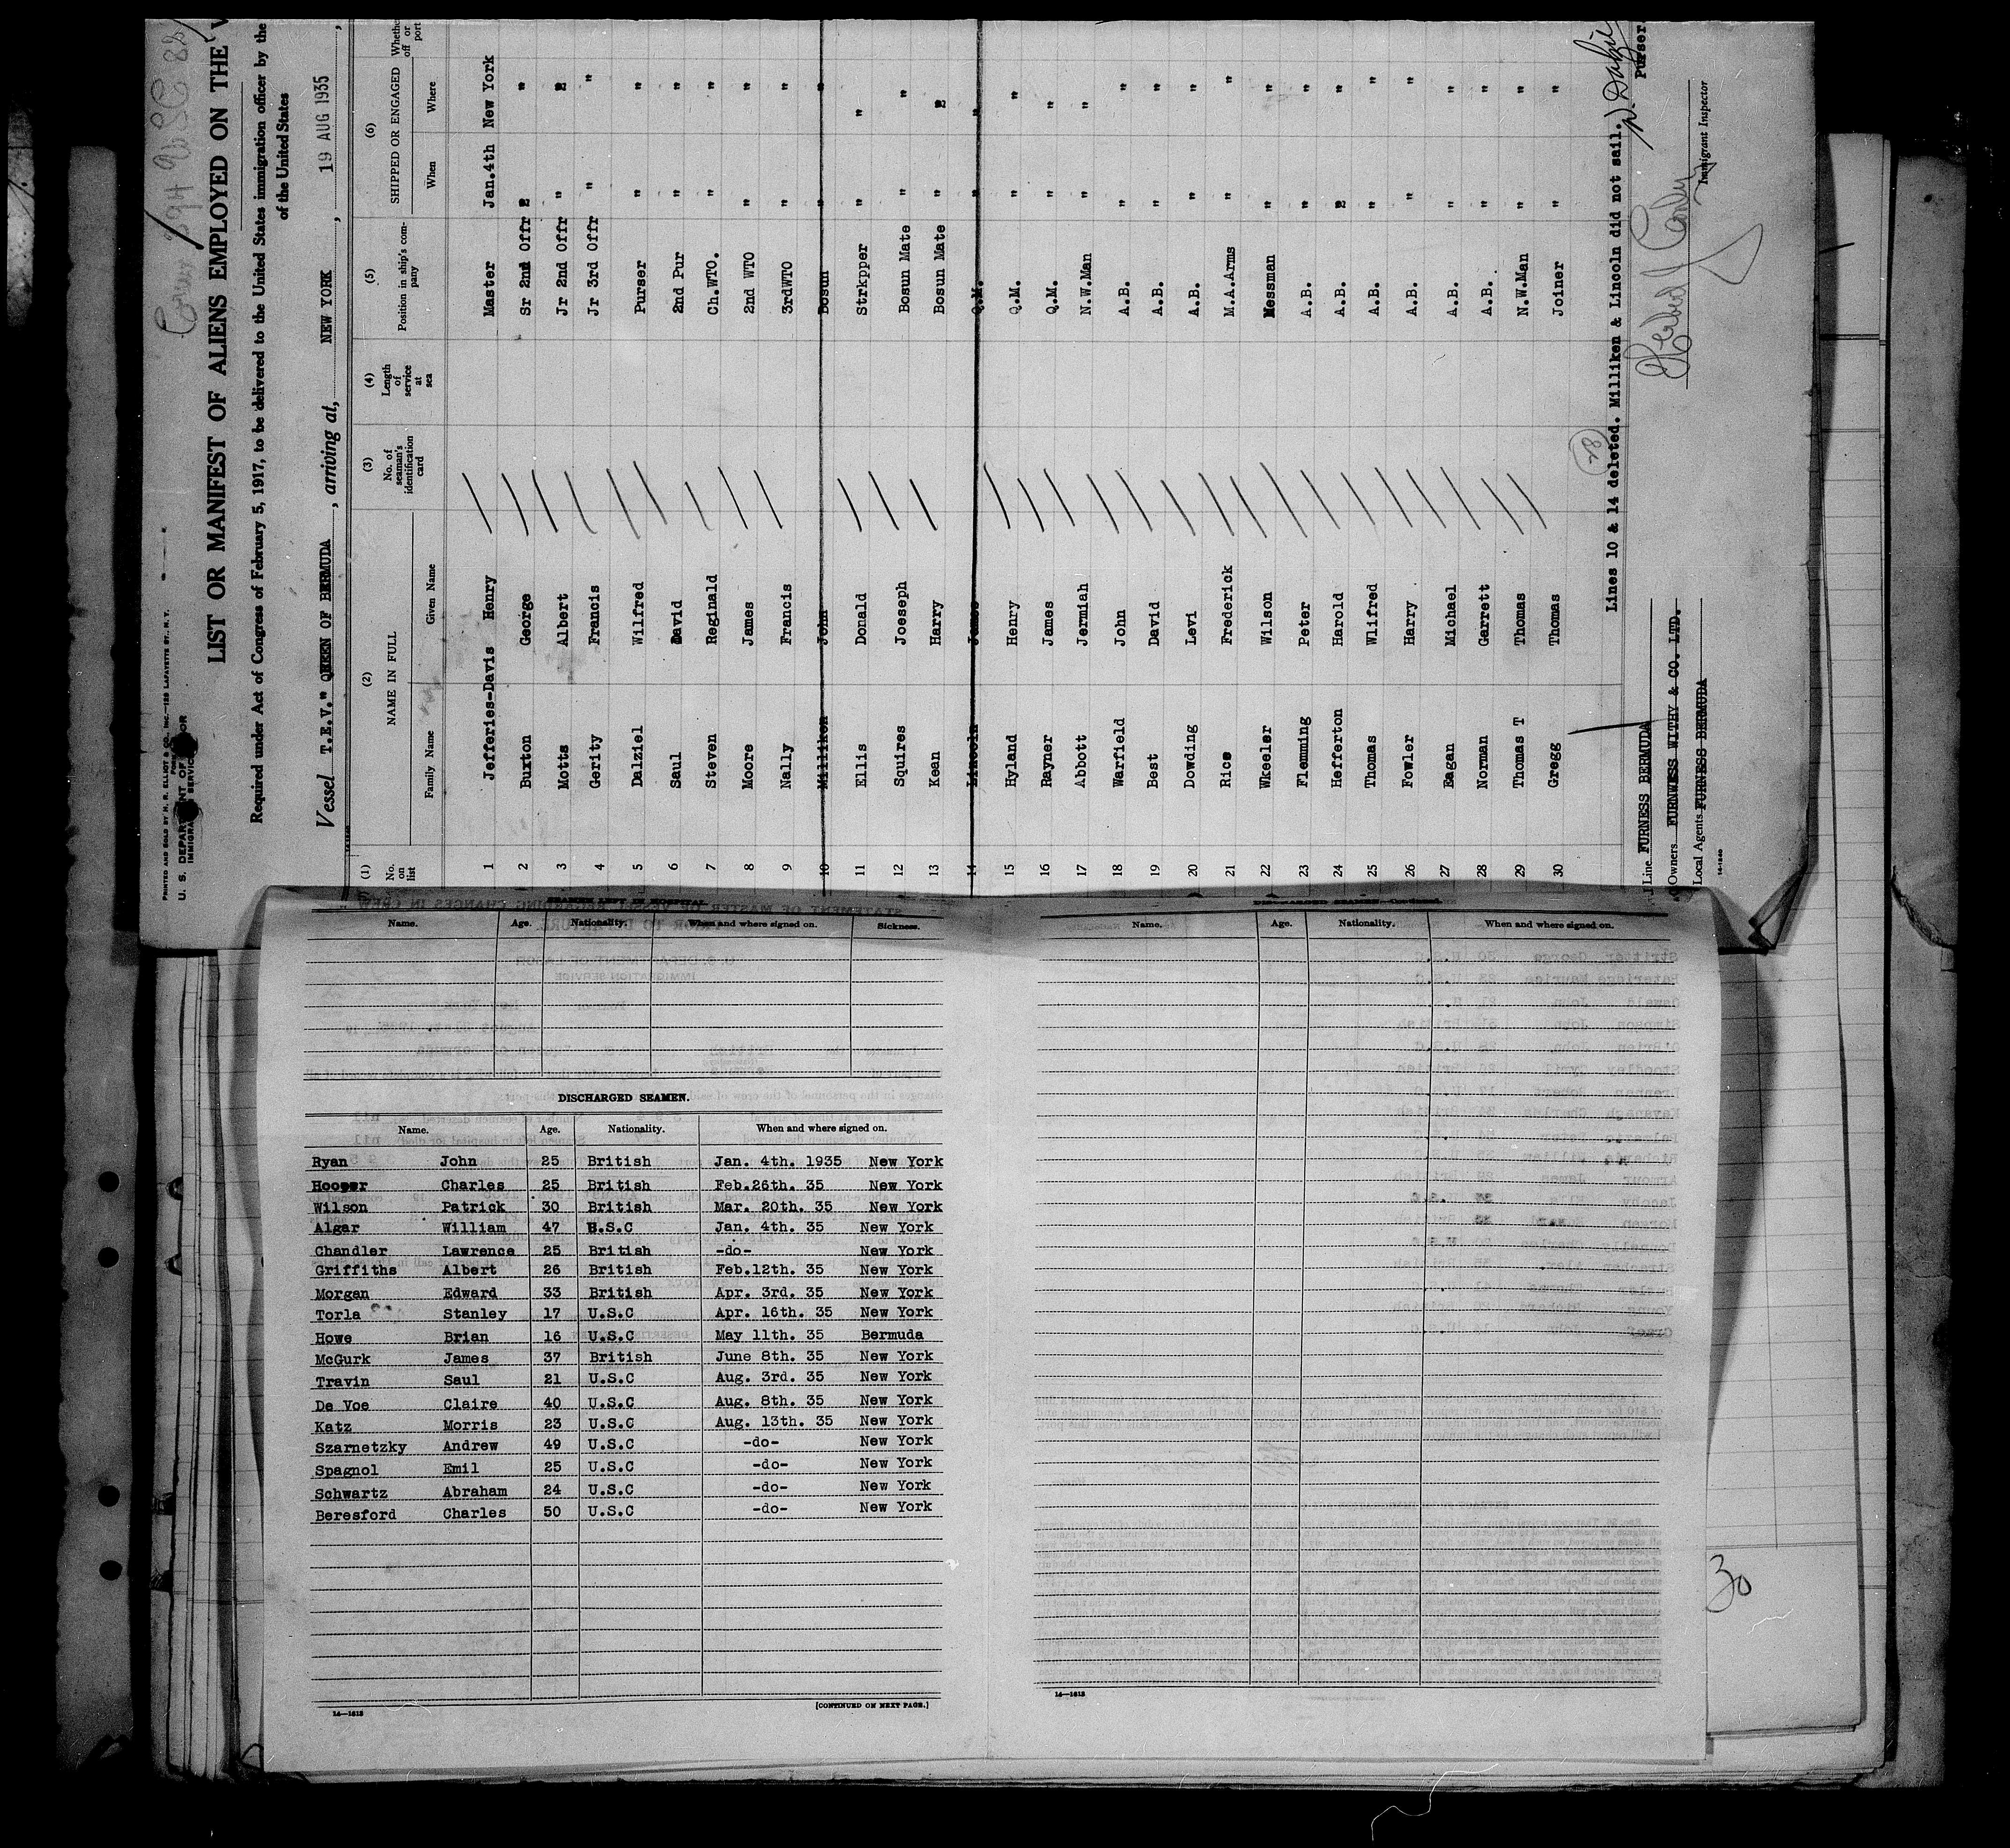 PRINTED AND SOLD BY H. R. ELLIOT & CO., Inc.—125 LAFAYETTE ST., N. Y.
U. S. DEPARTMENT OF LABOR
IMMIGRATION SERVICE
LIST OR MANIFEST OF ALIENS EMPLOYED ON THE V
Required under Act of Congress of February 5, 1917, to be delivered to the United States immigration officer by the
of the United States
Vessel T.E.V." QUEEN OF BERMUDA, arriving at, NEW YORK, 19 AUG 1935,
(1) (2) (3) (4) (5) (6)
No. on list NAME IN FULL No. of seaman's identification card Length of service at sea Position in ship's company SHIPPED OR ENGAGED
Family Name Given Name When Where
1 Jefferies-Davis Henry Master Jan.4th New York
2 Burton George Sr 2nd Offr " "
3 Motts Albert Jr 2nd Offr " "
4 Gerity Francis Jr 3rd Offr " "
5 Dalziel Wilfred Purser " "
6 Saul David 2nd Pur " "
7 Steven Reginald Ch.WTO. " "
8 Moore James 2nd WTO " "
9 Nally Francis 3rdWTO " "
10 Milliken John Bosun " "
11 Ellis Donald Strkpper " "
12 Squires Joeseph Bosun Mate " "
13 Kean Harry Bosun Mate " "
14 Lincoln James Q.M. " "
15 Hyland Henry Q.M. " "
16 Rayner James Q.M. " "
17 Abbott Jermiah N.W.Man " "
18 Warfield John A.B. " "
19 Best David A.B. " "
20 Dowding Levi A.B. " "
21 Rice Frederick M.A.Arms " "
22 Wkeeler Wilson Messman " "
23 Flemming Peter A.B. " "
24 Hefferton Harold A.B. " "
25 Thomas Wlifred A.B. " "
26 Fowler Harry A.B. " "
27 Eagan Michael A.B. " "
28 Norman Garrett A.B. " "
29 Thomas T Thomas N.W.Man " "
30 Gregg Thomas Joiner " "
Lines 10 & 14 deleted. Milliken & Lincoln did not sail.
Purser
Line FURNESS BERMUDA
Owners FURNWESS WITHY & CO. LTD.
Local Agents FURNESS BERMUDA
Immigrant Inspector
Name. Age. Nationality. When and where signed on. Sickness.
DISCHARGED SEAMEN.
Name. Age. Nationality. When and where signed on.
Ryan John 25 British Jan. 4th. 1935 New York
Hooper Charles 25 British Feb.26th. 35 New York
Wilson Patrick 30 British Mar. 20th. 35 New York
Algar William 47 U.S.C Jan. 4th. 35 New York
Chandler Lawrence 25 British -do- New York
Griffiths Albert 26 British Feb.12th. 35 New York
Morgan Edward 33 British Apr. 3rd. 35 New York
Torla Stanley 17 U.S.C Apr. 16th. 35 New York
Howe Brian 16 U.S.C May 11th. 35 Bermuda
McGurk James 37 British June 8th. 35 New York
Travin Saul 21 U.S.C Aug. 3rd. 35 New York
De Voe Claire 40 U.S.C Aug. 8th. 35 New York
Katz Morris 23 U.S.C Aug. 13th. 35 New York
Szarnetzky Andrew 49 U.S.C -do- New York
Spagnol Emil 25 U.S.C -do- New York
Schwartz Abraham 24 U.S.C -do- New York
Beresford Charles 50 U.S.C -do- New York
[CONTINUED ON NEXT PAGE.]
14—1613
DISCHARGED SEAMEN—Continued.
Name. Age. Nationality. When and where signed on.
14—1613
30